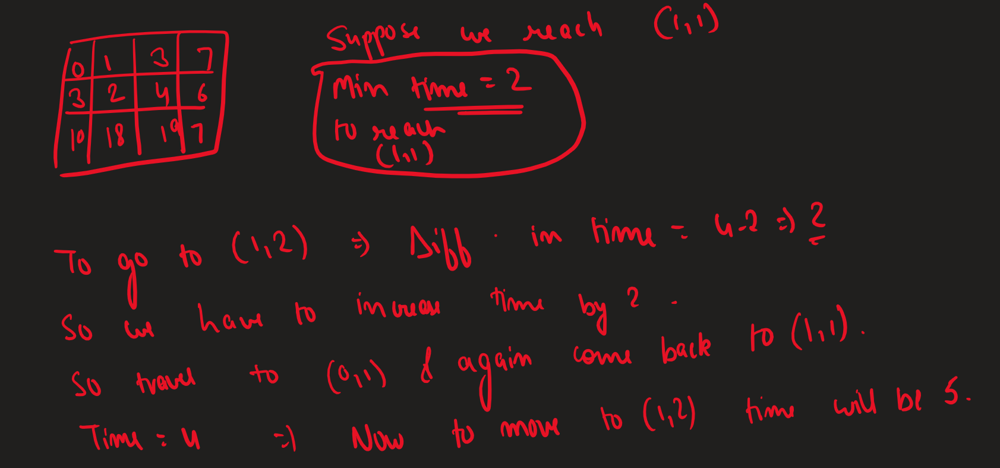 Suppose we reach (1,1)
0 1 3 7
3 2 4 6
10 18 19 7
Min time = 2
to reach
(1,1)
To go to (1,2) => Diff. in time = 4-2 => 2
So we have to increase time by 2.
So travel to (0,1) & again come back to (1,1).
Time = 4 => Now to move to (1,2) time will be 5.